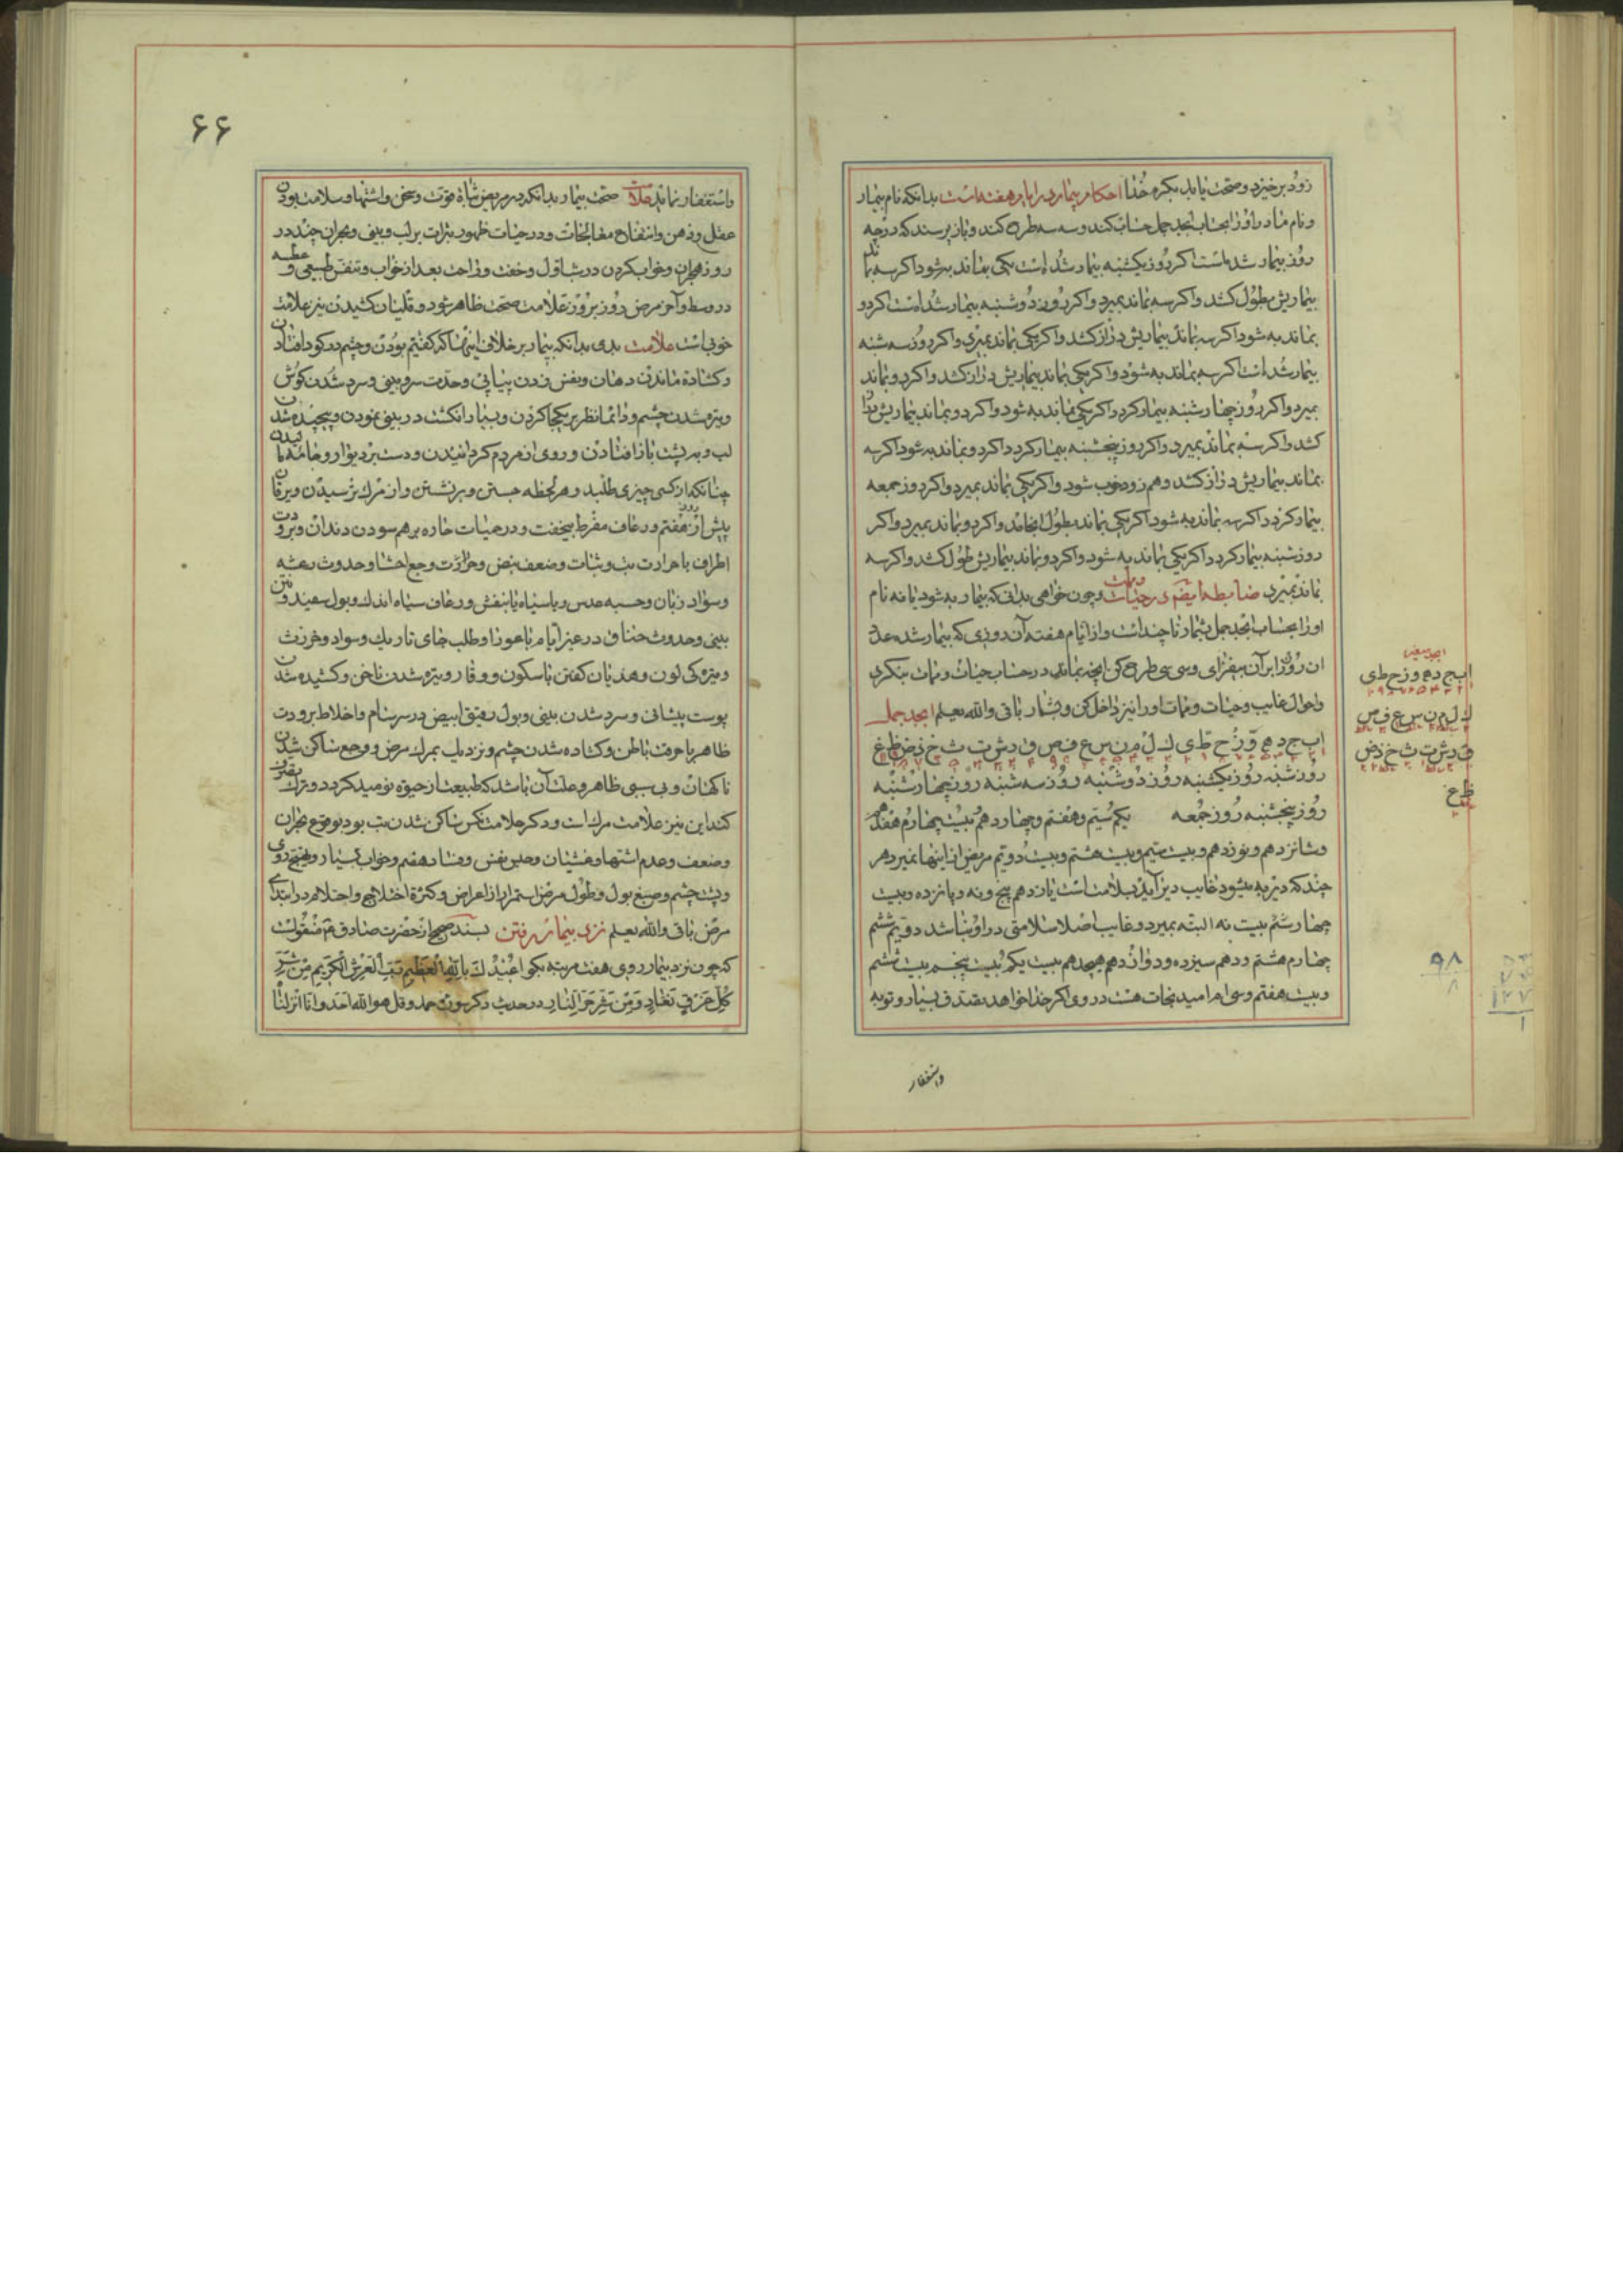 زود برخیزد و صحت یابد بکرم خدا احکام بیماری در ایام هفته است بدانکه نام بیمار
و نام مادر او را بحساب ابجد جمل حساب کند و سه سه طرح کند و باز پرسند که در چه
روز بیمار شده است اکر روز یکشنبه بیمار شده است یکی بماند به شود اکر سه بماند
بیماریش بطول کشد و اکر سه بماند بمیرد و اکر روز دوشنبه بیمار شده است اکر دو
بماند به شود اکر سه بماند بیماریش دراز کشد و اکر یکی بماند بمیرد و اکر روز سه شنبه
بیمار شده است اکر سه بماند به شود و اکر یکی بماند بیماریش دراز کشد و اکر دو بماند
بمیرد و اکر روز چهارشنبه بیمار کردد اکر یکی بماند به شود و اکر دو بماند بیماریش دراز
کشد و اکر سه بماند بمیرد و اکر روز پنجشنبه بیمار کردد اکر دو بماند به شود اکر سه
بماند بیماریش دراز کشد و هم زود خوب شود و اکر یکی بماند بمیرد و اکر روز جمعه
بیمار کردد اکر سه بماند به شود اکر یکی بماند بطول انجامد و اکر دو بماند بمیرد و اکر
روز شنبه بیمار کردد اکر یکی بماند به شود و اکر دو بماند بیماریش طول کشد و اکر سه
بماند بمیرد ضابطه ایضم در حیات و ممات و چون خواهی بدانی که بیمار به شود یا نه نام
او را بحساب ابجد جمل بشمار تا چند است و از ایام هفته آن روزی که بیمار شده عدد
ان روز را بر آن بیفزای و سی سی طرح کن انچه بماند در حساب حیات و ممات بنکری
و احوال غایب و حیات و ممات او را نیز داخل کن و بشمار باقی والله یعلم ابجد جمل
ا ب ج د ه و ز ح ط ی ك ل م ن س ع ف ص ق ر ش ت ث خ ذ ض ظ غ
روز شنبه روز یکشنبه روز دوشنبه روز سه شنبه روز چهارشنبه
روز پنجشنبه روز جمعه یکم سیم و هفتم و چهاردهم بیست چهارم هفدهم
و شانزدهم و نوزدهم و بیست سیم و بیست هشتم و بیست دویم مریض از اینها نمیرد هر
چند که دیر به میشود غایب دیر آید بسلامت است یازدهم پنج و نه و پانزده و بیست
چهار ششم بیست نه البته بمیرد و غایب اصلا سلامتی در او نباشد دویم ششم
چهارم هشتم و دهم سیزده و دوازدهم هیجدهم بیست یکم بیست پنجم بیست ششم
و بیست هفتم و سی ام امید نجات هست در وی اکر خدا خواهد بتصدق بسیار و توبه
و استغفار
ابجد صغیر
ا ب ج د ه و ز ح ط ی
ك ل م ن س ع ف ص
ق ر ش ت ث خ ذ ض
ظ غ
۹۸
۸
۶۶
و استغفار نماید علامات صحت بیمار بدانکه در مریض ثبات قوت و سخن و اشتها و سلامت بودن
عقل و ذهن و انتفاع معالجات و در حیات ظهور بثرات بر لب و بینی و بحران جید در
روز بحران و خواب کردن در شب اول و خفت و راحت بعد از خواب و تنفس طبیعی و عطسه
در وسط و آخر مرض روز بروز علامت صحت ظاهر شود و قلیان کشیدن نیز علامت
خوبی است علامت بدی بدانکه بیمار بر خلاف اینها که کفتیم بودن و چشم در کود افتادن
و کشاده ماندن دهان و نفس زدن پیاپی و حدت سر و بینی و سرد شدن کوش
و تیره شدن چشم و دائما نظر بر یکجا کردن و بسیار انکشت در بینی نمودن و پیچیده شدن
لب و بر پشت باز افتادن و روی از مردم کردانیدن و دست بر دیوار و جامه مالیدن
چنانکه از کسی چیزی طلبد و هر لحظه جستن و بر نشستن و از مرك ترسیدن و یرقان
پیش از روز هفتم و رعاف مفرط بیخفت و در حیات حاره بر هم سودن دندان و برودت
اطراف با حرارت تب و ثبات و ضعف نبض و حرارت وجع احشا و حدوث رعشه
و سواد زبان و حسبه عدس و یا سیاه یا بنفش و رعاف سیاه اندك و بول سفید و نتن
بینی و حدوث خناق در غیر ایام باحورا و طلب جای تاریك و سواد و خرزت
و تیره کی لون و هذیان کفتن با سکون و وقار و تیره شدن ناخن و کشیده شدن
پوست پیشانی و سرد شدن بینی و بول رقیق ابیض در سرسام و اخلاط برودت
ظاهر با حرقت باطن و کشاده شدن چشم و نزدیك بمرك مرض و وجع ساکن شدن
ناکهان و بی سببی ظاهر و علت آن باشد که طبیعت از حیوة نومید کردد و ترك
کند این نیز علامت مرك است و ذکر علامت نکس ساکن شدن تب بود بوقوع بحران
و ضعف و عدم اشتها و غشیان و حدس نفس و فساد هضم و خواب بسیار و تهیج روی
و پشت چشم و صبغ بول و طول مرض استمرار از اعراض و کثرة اختلاج و احتلام در ابتدای
مرض باقی والله یعلم نزد بیمار رفتن بسند صحیح از حضرت صادق ع م منقولست
که چون نزد بیمار روی هفت مرتبه بکو اعیذك بالله العظیم رب العرش الکریم من شر
کل عرق نعار و من شر حر النار در حدیث دیکر سوره حمد و قل هو الله احد و انا انزلنا